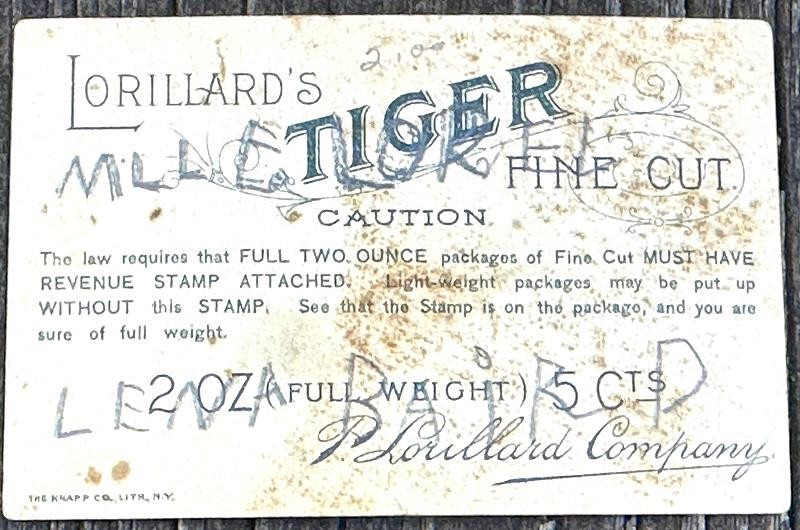 2.00
LORILLARD'S
TIGER
MILLE
FINE CUT.
CAUTION.
The law requires that FULL TWO OUNCE packages of Fine Cut MUST HAVE
REVENUE STAMP ATTACHED. Light-weight packages may be put up
WITHOUT this STAMP. See that the Stamp is on the package, and you are
sure of full weight.
2 OZ (FULL WEIGHT) 5 CTS
LENA BAIRD
P. Lorillard Company.
THE KNAPP CO. LITH. N.Y.